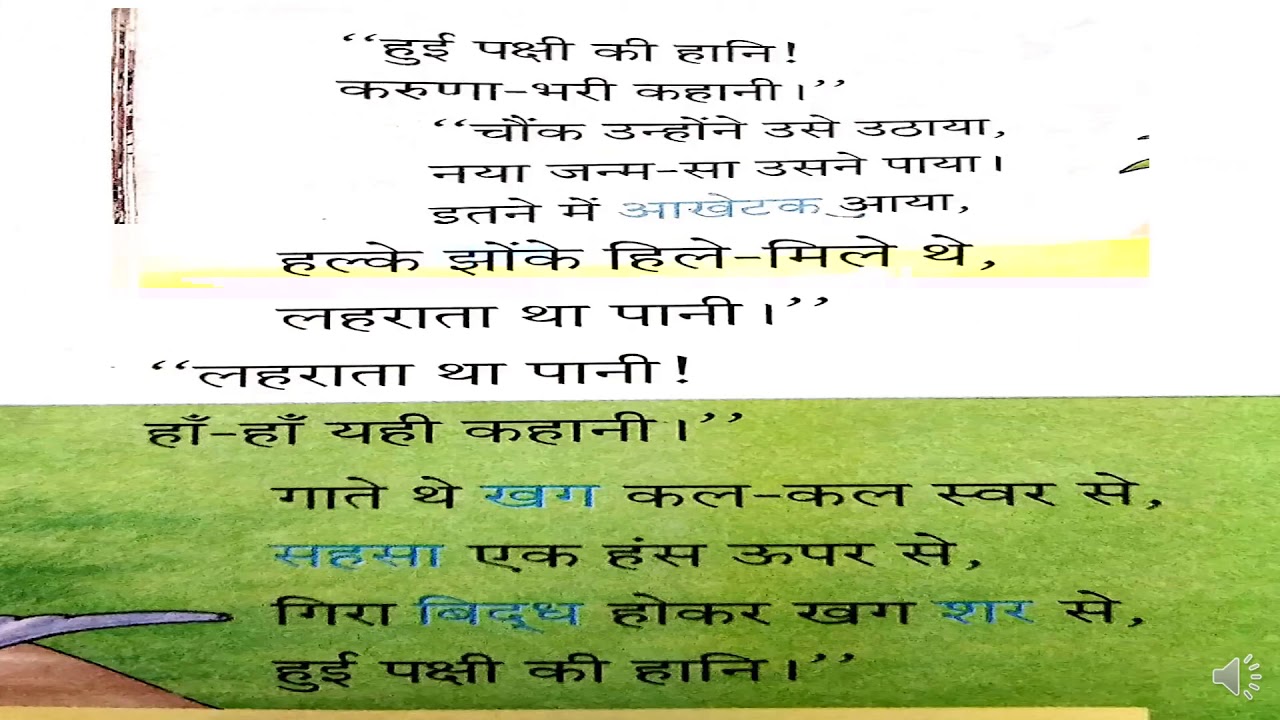 ‘‘हुई पक्षी की हानि!
करुणा-भरी कहानी।’’
‘‘चौंक उन्होंने उसे उठाया,
नया जन्म-सा उसने पाया।
इतने में आखेटक आया,
हल्के झोंके हिले-मिले थे,
लहराता था पानी।’’
‘‘लहराता था पानी!
हाँ-हाँ यही कहानी।’’
गाते थे खग कल-कल स्वर से,
सहसा एक हंस ऊपर से,
गिरा बिद्ध होकर खग शर से,
हुई पक्षी की हानि।’’